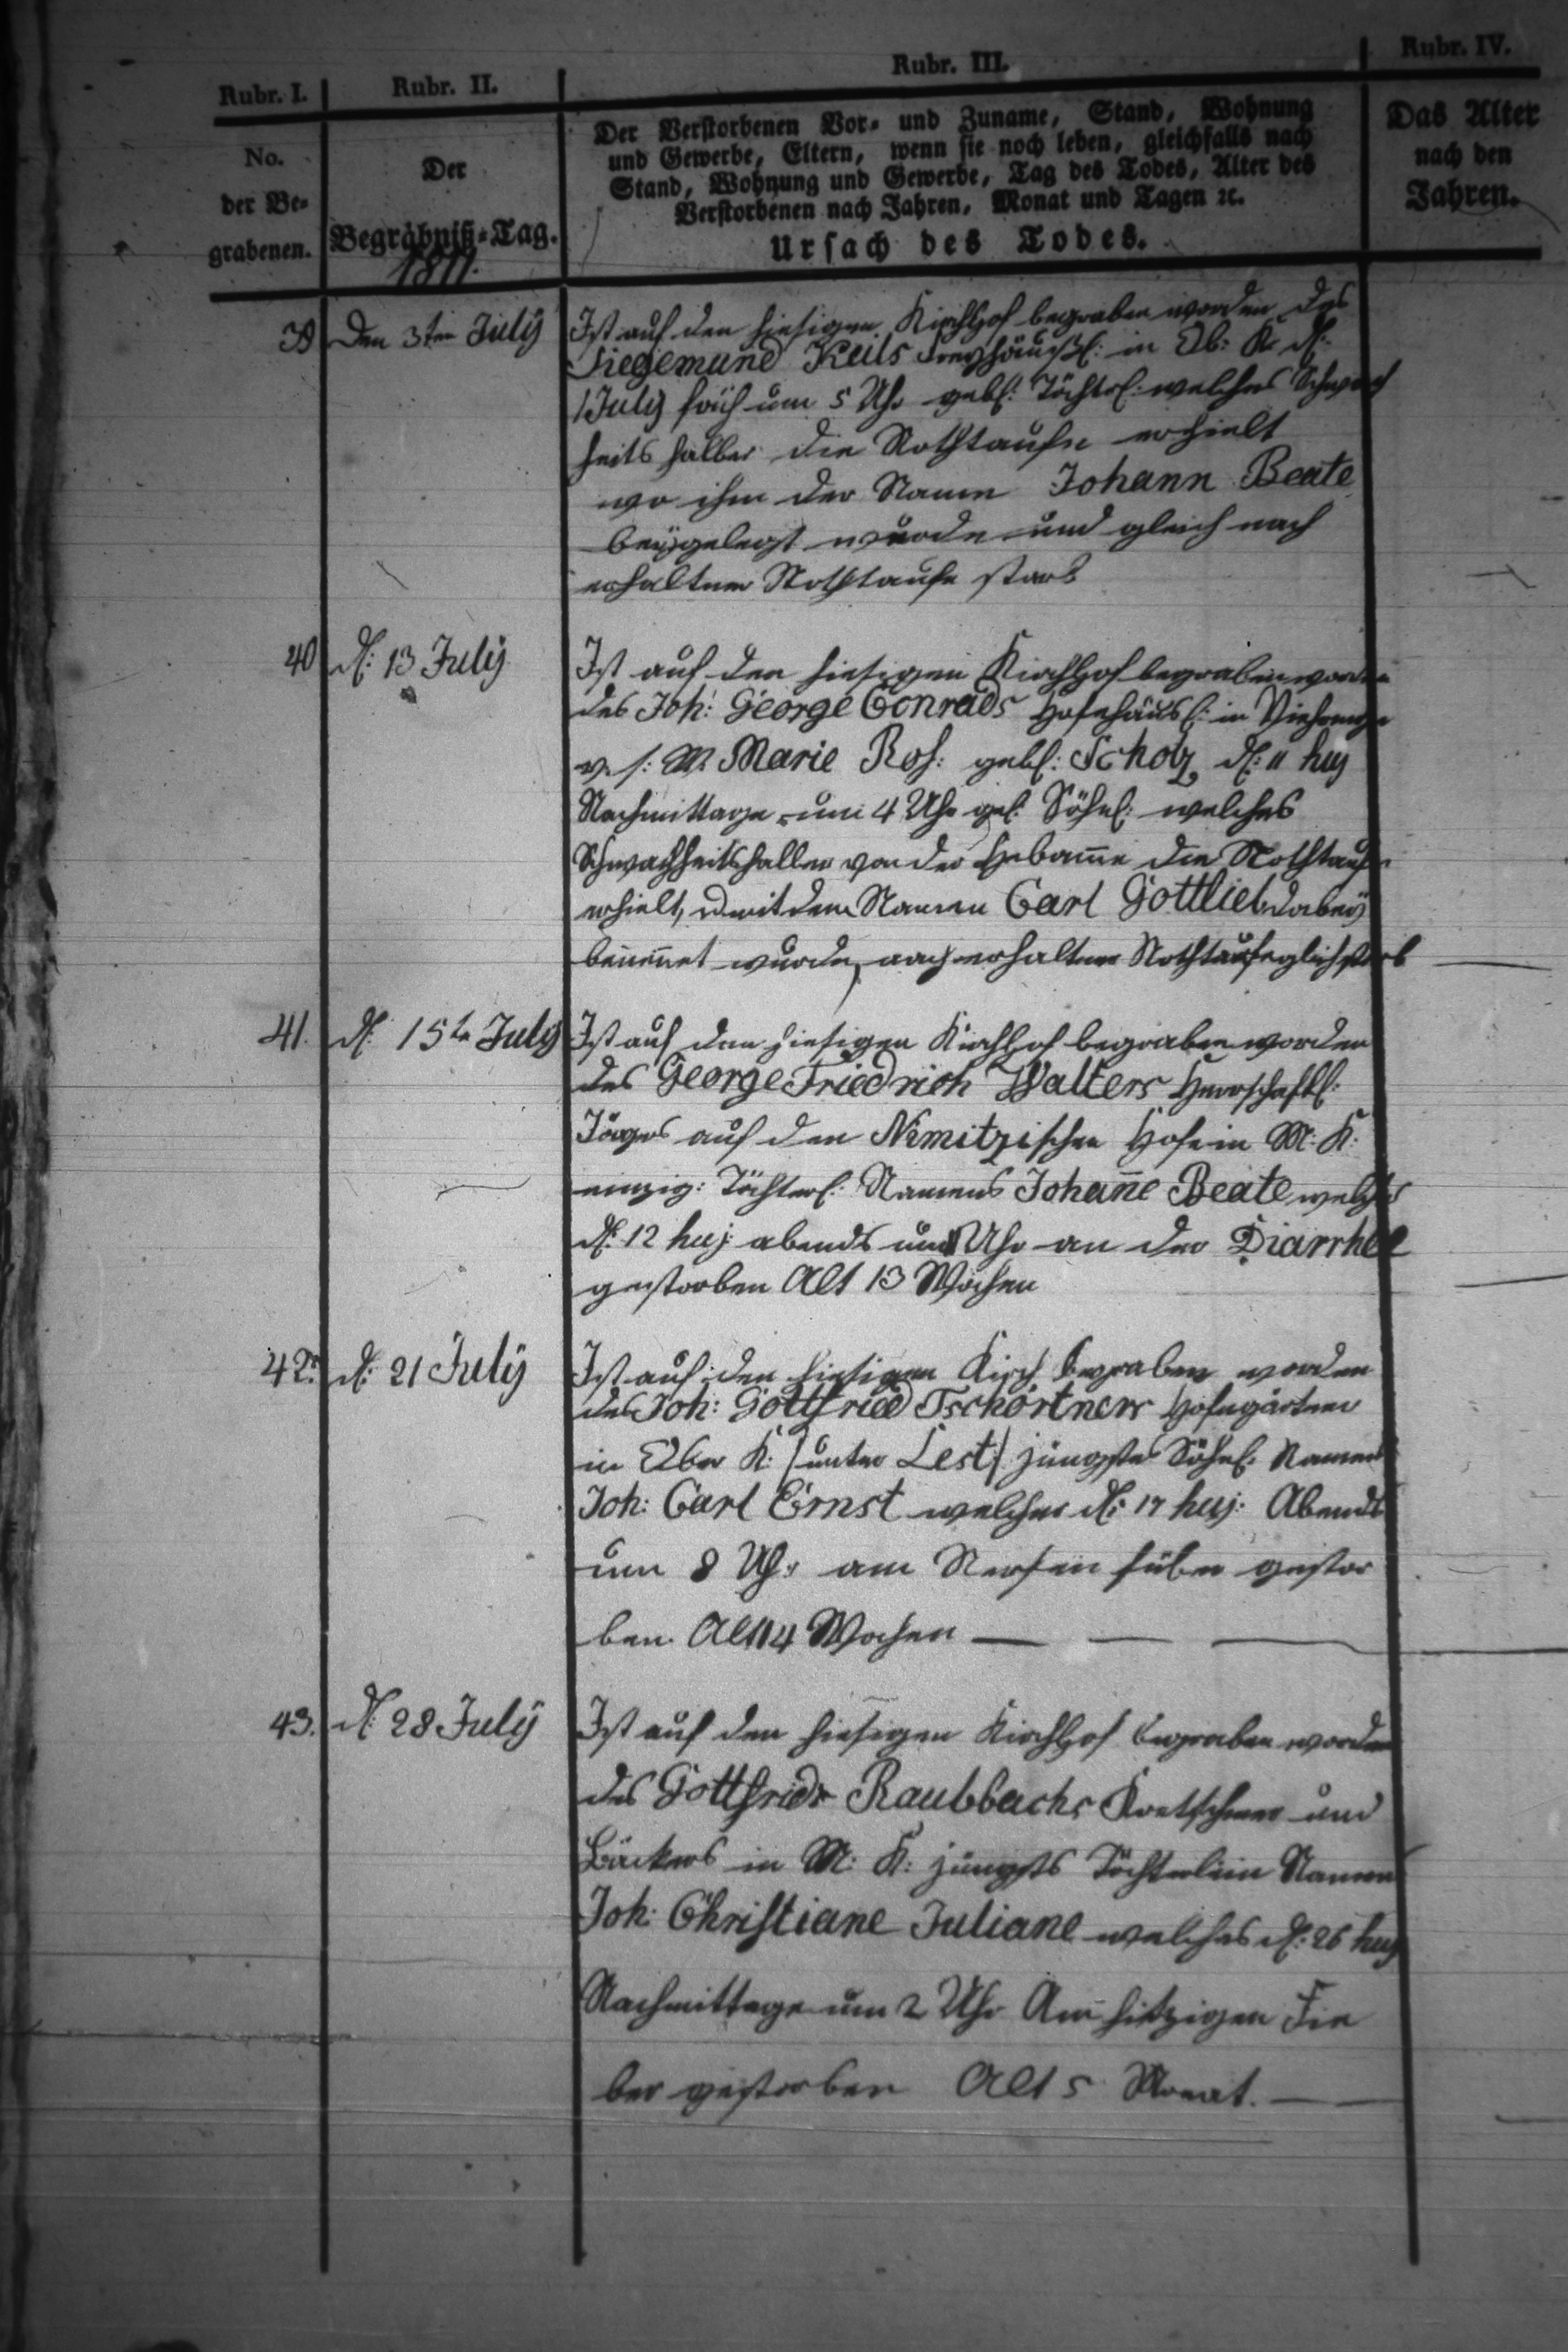 Rubr. I. Rubr. II. Rubr. III. Rubr. IV.
No.
der Be-
grabenen.
Der
Begräbniß-Tag.
1811.
Der Verstorbenen Vor- und Zuname, Stand, Wohnung
und Gewerbe, Eltern, wenn sie noch leben, gleichfalls nach
Stand, Wohnung und Gewerbe, Tag des Todes, Alter des
Verstorbenen nach Jahren, Monat und Tagen ꝛc.
Ursach des Todes.
Das Alter
nach den
Jahren.
39 Den 3ten July Ist auf den hiesigen Kirchhof begraben worden des
Siegemund Keils Freyhäußl: in Ob: K. d:
1 July früh um 5 Uhr gebl: Töchtl: welches Schwach
heits halber die Nothtaufe erhielt
wo ihm der Name Johann Beate
beygelegt wurde und gleich nach
erhaltner Nothtaufe starb
40 d: 13 July Ist auf den hiesigen Kirchhof begraben worden
des Joh: George Conrads Hofehäusl: in
v. s: W. Marie Ros: gebl: Scholz d: 11 huj
Nachmittage um 4 Uhr gel: Söhnl: welches
Schwachheitshalber von der Hebame die Nothtaufe
erhielt, mit dem Namen Carl Gottlieb dabey
benennet wurde, nach erhaltner Nothtaufe gleich starb
41. d: 15te July Ist auf den hiesigen Kirchhof begraben worden
des George Friedrich Walters Herrschaftl:
Jägers auf den Nimitzischen Hofe in M: K:
einzig: Töchterl: Namens Johanne Beate welches
d: 12 huj: abends um Uhr an der Diarrhee
gestorben Alt 13 Wochen
42. d: 21 July Ist auf den hiesigen Kirch begraben worden
des Joh: Gottfried Tschörtners Hofegärtner
in Ober K: /unter Lest/ jüngstes Söhnl: Namens
Joh: Carl Ernst welches d: 17 huj: Abends
um 8 Uhr am gestor
ben. Alt 14 Wochen
43. d: 28 July Ist auf den hiesigen Kirchhof begraben worden
des Gottfried Raubbachs Kretschmer und
Bäckers in M: K: jüngstes Töchterlein Namens
Joh: Christiane Juliane welches d: 26 huj
Nachmittage um 2 Uhr Am hitzigen Fie
ber gestorben Alt 5 Monat.